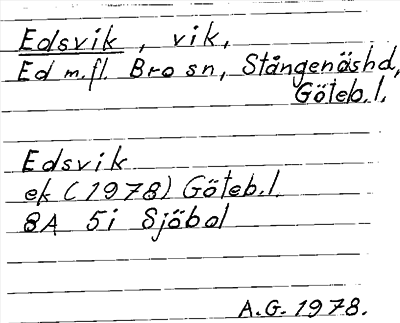 Edsvik, vik,
Ed m.fl. Bro sn, Stångenäshd,
Göteb.l.
Edsvik
ek (1978) Göteb.l.
8A 5i Sjöbol
A.G. 1978.